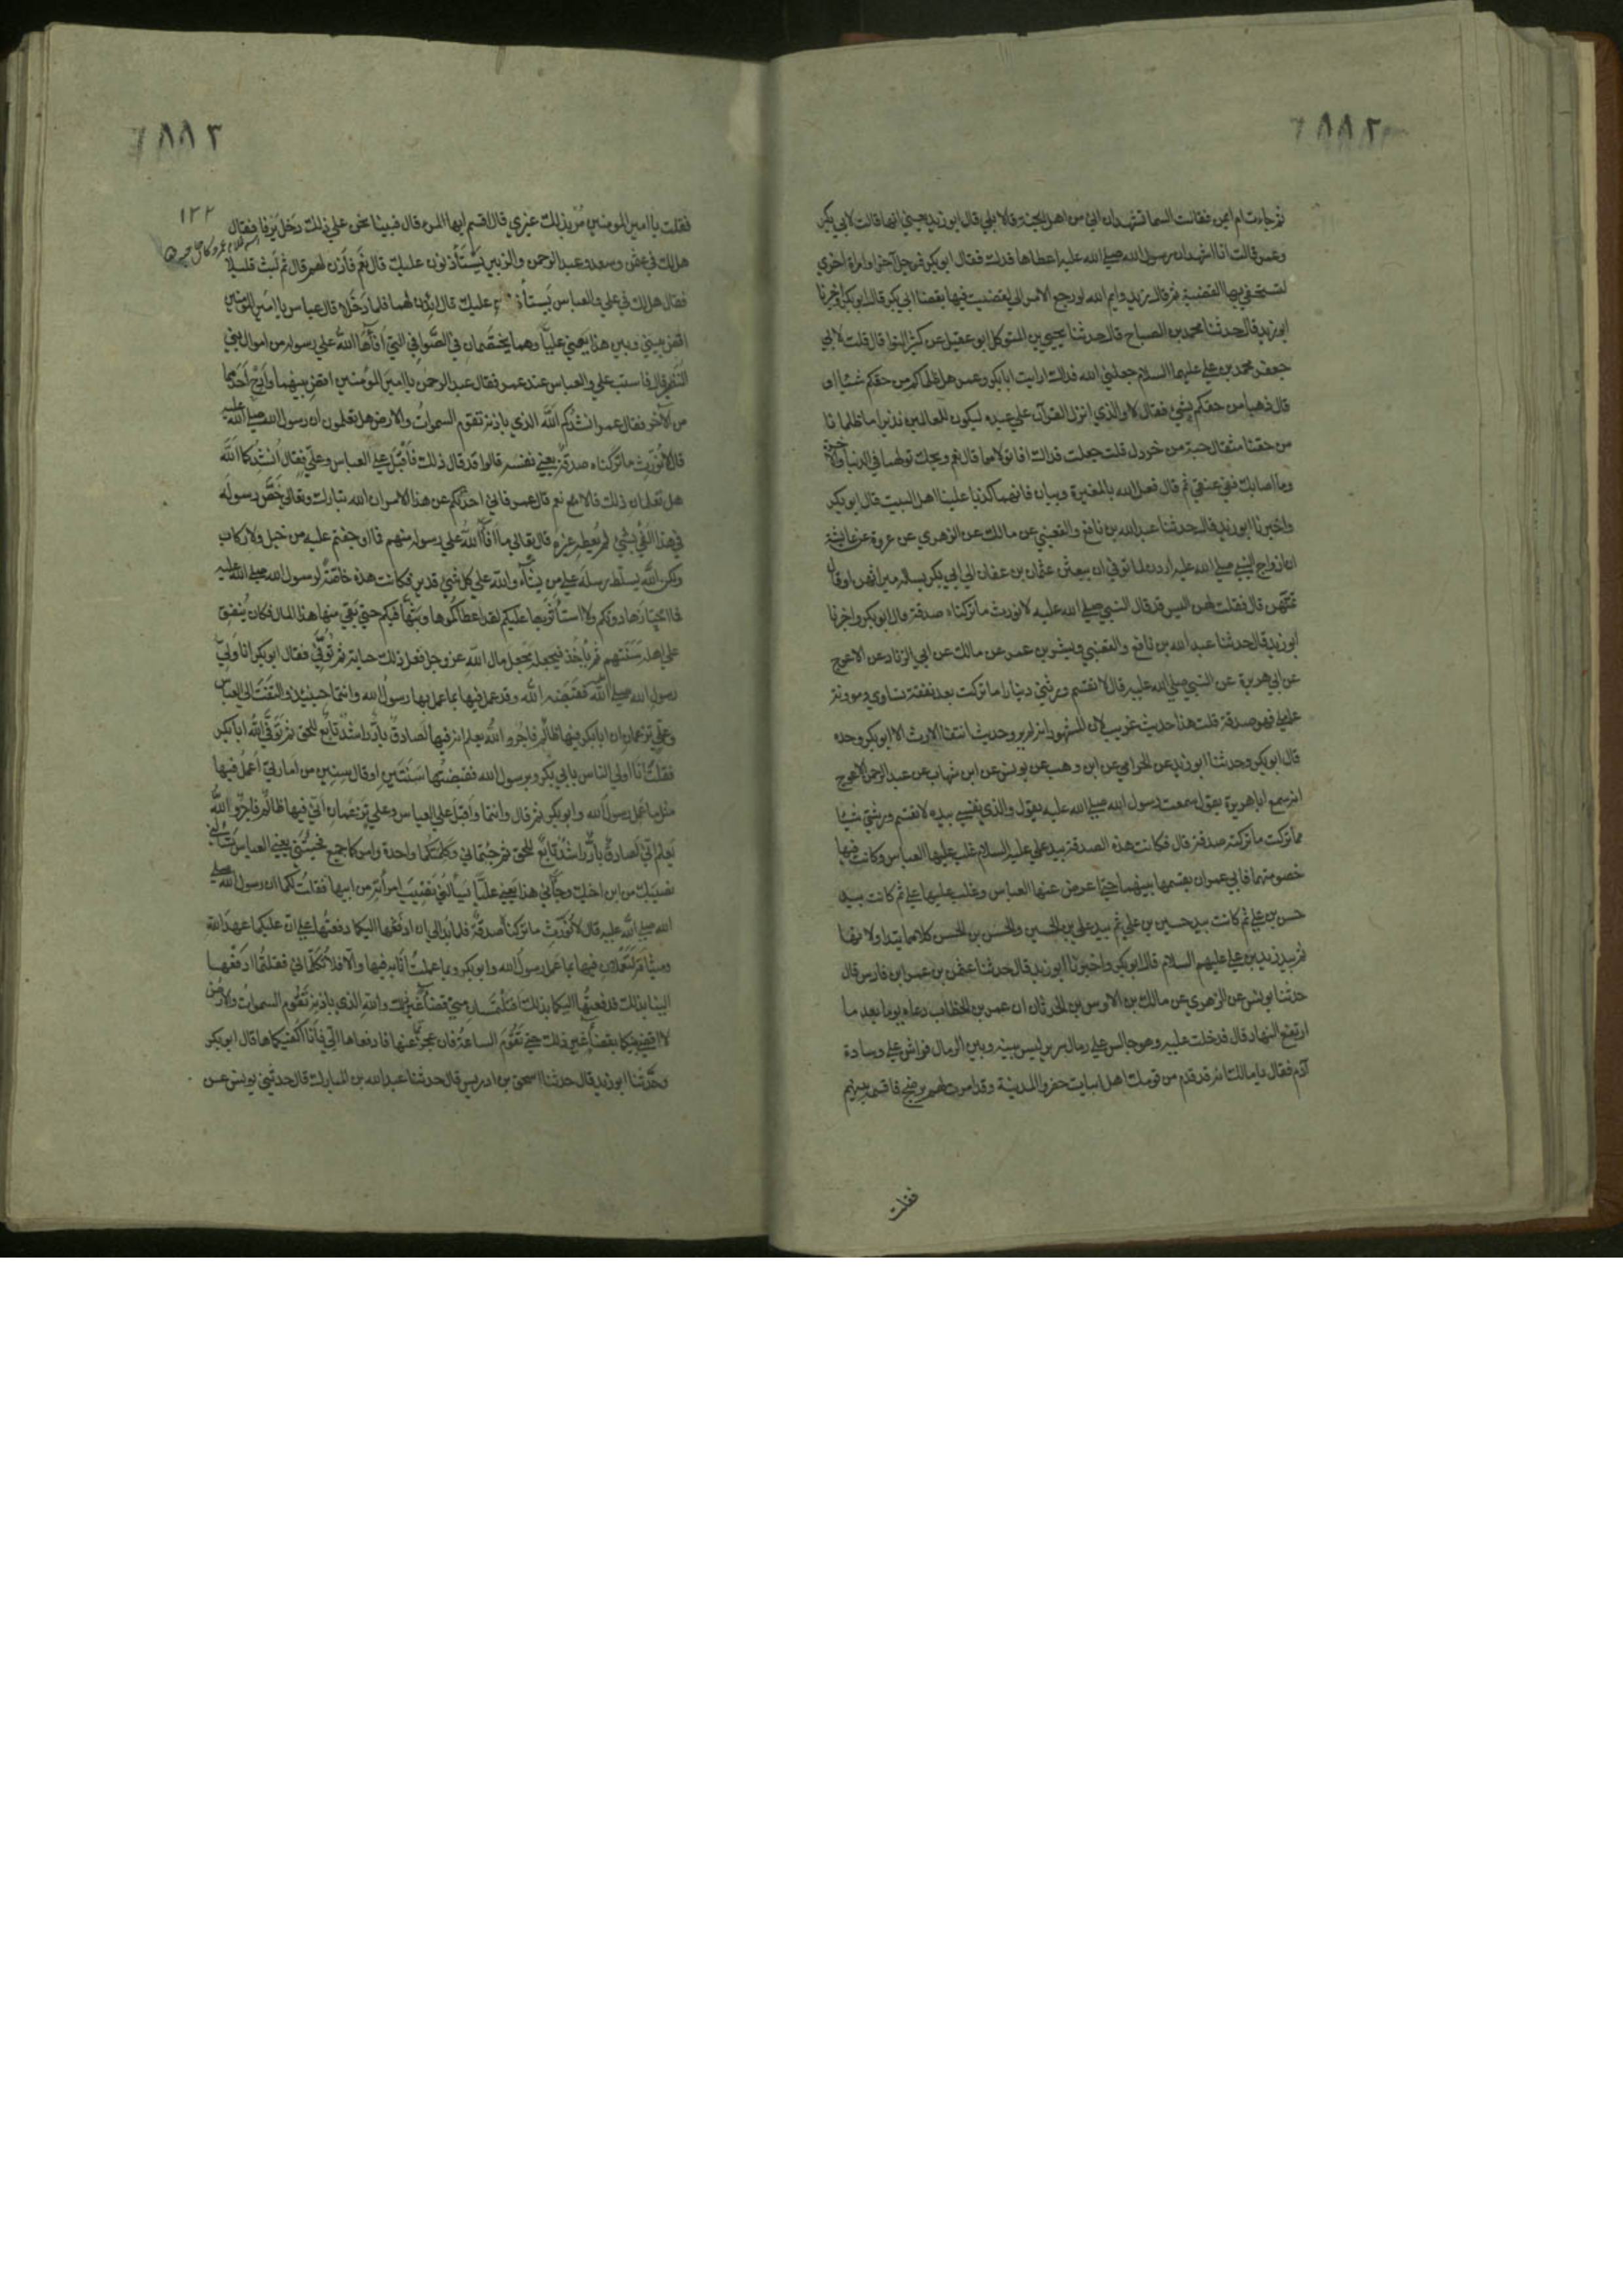 ٢٨٨٦
ثم جاءت ام ايمن فقالت الستما تشهدان اني من اهل الجنة قالا بلى قال ابو زيد يعني انها قالت لابي بكر
وعمر قالت انا اشهدان رسول الله صلى الله عليه اعطاها فدك فقال ابو بكر فرجل آخر او امراة اخرى
لتستحقي بها القضية ثم قال زيد وايم الله لو رجع الامر الي لقضيت فيها بقضا ابي بكر قال ابو بكر واخبرنا
ابو زيد قال حدثنا محمد بن الصباح قال حدثنا يحيى بن المتوكل ابو عقيل عن كثير النوا قال قلت لابي
جعفر محمد بن علي عليهما السلام جعلني الله فداك ارايت ابا بكر وعمر هل ظلماكم من حقكم شيئا او
قال ذهبا من حقكم بشئ فقال لا والذي انزل القرآن على عبده ليكون للعالمين نذيرا ما ظلمانا
من حقنا مثقال حبة من خردل قلت جعلت فداك افاتولاهما قال نعم ويحك تولهما في الدنيا والآخرة
وما اصابك ففي عنقي ثم قال فعل الله بالمغيرة وبيان فانهما كذبا علينا اهل البيت قال ابو بكر
واخبرنا ابو زيد قال حدثنا عبد الله بن نافع والقعنبي عن مالك عن الزهري عن عروة عن عايشة
ان ازواج النبي صلى الله عليه اردن لما توفي ان يبعثن عثمان بن عفان الى ابي بكر يسأله ميراثهن او قال
ثمنهن قال فقلت لهن اليس قد قال النبي صلى الله عليه لا نورث ما تركناه صدقة قال ابو بكر واخبرنا
ابو زيد قال حدثنا عبد الله بن نافع والقعنبي وبشر بن عمر عن مالك عن ابي الزناد عن الاعرج
عن ابي هريرة عن النبي صلى الله عليه قال لا تقسم ورثتي دينارا ما تركت بعد نفقة نسائي ومؤونة
عاملي فهو صدقة قلت هذا حديث غريب لان المشهور انه لم يرو حديث انتفا الارث الا ابو بكر وحده
قال ابو بكر وحدثنا ابو زيد عن الحزامي عن ابن وهب عن يونس عن ابن شهاب عن عبد الرحمن الاعرج
انه سمع ابا هريرة يقول سمعت رسول الله صلى الله عليه يقول والذي نفسي بيده لا تقسم ورثتي شيئا
مما تركت ما تركته صدقة قال فكانت هذه الصدقة بيد علي عليه السلام غلب عليها العباس وكانت فيها
خصومتهما فابى عمر ان يقسمها بينهما حتى اعرض عنها العباس وغلب عليها علي ثم كانت بيد
حسن بن علي ثم كانت بيد حسين بن علي ثم بيد علي بن الحسين والحسن بن الحسن كلاهما يتداولانها
ثم بيد زيد بن علي عليهم السلام قال ابو بكر واخبرنا ابو زيد قال حدثنا عثمن بن عمر ابن فارس قال
حدثنا يونس عن الزهري عن مالك بن الاوس ابن الحدثان ان عمر بن الخطاب دعاه يوما بعد ما
ارتفع النهار قال فدخلت عليه وهو جالس على رمال سرير ليس بينه وبين الرمال فراش على وسادة
آدم فقال يا مالك انه قد قدم من قومك اهل ابيات حضروا المدينة وقد امرت لهم برضخ فاقسمه بينهم
فقلت
٢٨٨٦
١٣٢
فقلت يا امير المومنين مُر بذلك غيري قال اقسم ايها المرء قال فبينا نحن على ذلك دخل يرفا فقال
هل لك في عثمن وسعد وعبد الرحمن والزبير يستأذنون عليك قال نعم فأذن لهم قال ثم لبث قليلا
فقال هل لك في علي والعباس يستأذنان عليك قال ائذن لهما فلما دخلا قال عباس يا امير المؤمنين
اقض بيني وبين هذا يعني عليا وهما يختصمان في الصوافي التي افآها الله على رسوله من اموال بني
النضير قال فاستب علي والعباس عند عمر فقال عبد الرحمن يا امير المؤمنين اقض بينهما وارح احدهما
من الآخر فقال عمر انشدكم الله الذي باذنه تقوم السموات والارض هل تعلمون ان رسول الله صلى الله عليه
قال لا نورث ما تركناه صدقة يعني نفسه قالوا قد قال ذلك فأقبل على العباس وعلي فقال انشدكما الله
هل تعلمان ذلك قالا نعم قال عمر فاني احدثكم عن هذا الامر ان الله تبارك وتعالى خص رسوله
في هذا الفئ بشئ لم يعطه غيره قال تعالى ما افآ الله على رسوله منهم فما اوجفتم عليه من خيل ولا ركاب
ولكن الله يسلط رسله على من يشآء والله على كل شئ قدير فكانت هذه خاصة لرسول الله صلى الله عليه
فما احتازها دونكم ولا استأثر بها عليكم لقد اعطاكموها وبثها فيكم حتى بقي منها هذا المال فكان ينفق
على اهله سنتهم ثم ياخذ فيجعله مجعل مال الله عز وجل فعل ذلك حياته ثم توفي فقال ابو بكر انا ولي
رسول الله صلى الله فقبضه الله وقد عمل فيها بما عمل بها رسول الله وانتما حينئذ والتفت الى العباس
وعلي تزعمان ان ابا بكر فيها ظالم فاجر والله يعلم انه فيها لصادق بار راشد تابع للحق ثم توفى الله ابا بكر
فقلت انا اولى الناس بابي بكر وبرسول الله فقبضتها سنتين او قال سنين من امارتي اعمل فيها
مثل ما عمل رسول الله وابو بكر ثم قال وانتما واقبل على العباس وعلي تزعمان اني فيها ظالم فاجر والله
يعلم اني لصادق بار راشد تابع للحق ثم جئتماني وكلمتكما واحدة وامركما جميع فجئتني يعني العباس تسألني
نصيبك من ابن اخيك وجآني هذا يعني عليا يسألني نصيب امرأته من ابيها فقلت لكما ان رسول الله صلى
الله صلى الله عليه قال لا نورث ما تركنا صدقة فلما بدا لي ان ادفعها اليكما دفعتها على ان عليكما عهد الله
وميثاقه لتعملان فيها بما عمل رسول الله وابو بكر وبما عملت انا به فيها والا فلا تكلماني فقلتما ادفعها
الينا بذلك فدفعتها اليكما بذلك افتلتمسان مني قضآ غير ذلك والله الذي باذنه تقوم السموات والارض
لا اقضي بينكما بقضآ غير ذلك حتى تقوم الساعة فان عجزتما عنها فادفعاها الي فأنا اكفيكماها قال ابو بكر
وحدثنا ابو زيد قال حدثنا اسحق بن ادريس قال حدثنا عبد الله بن المبارك قال حدثني يونس عن